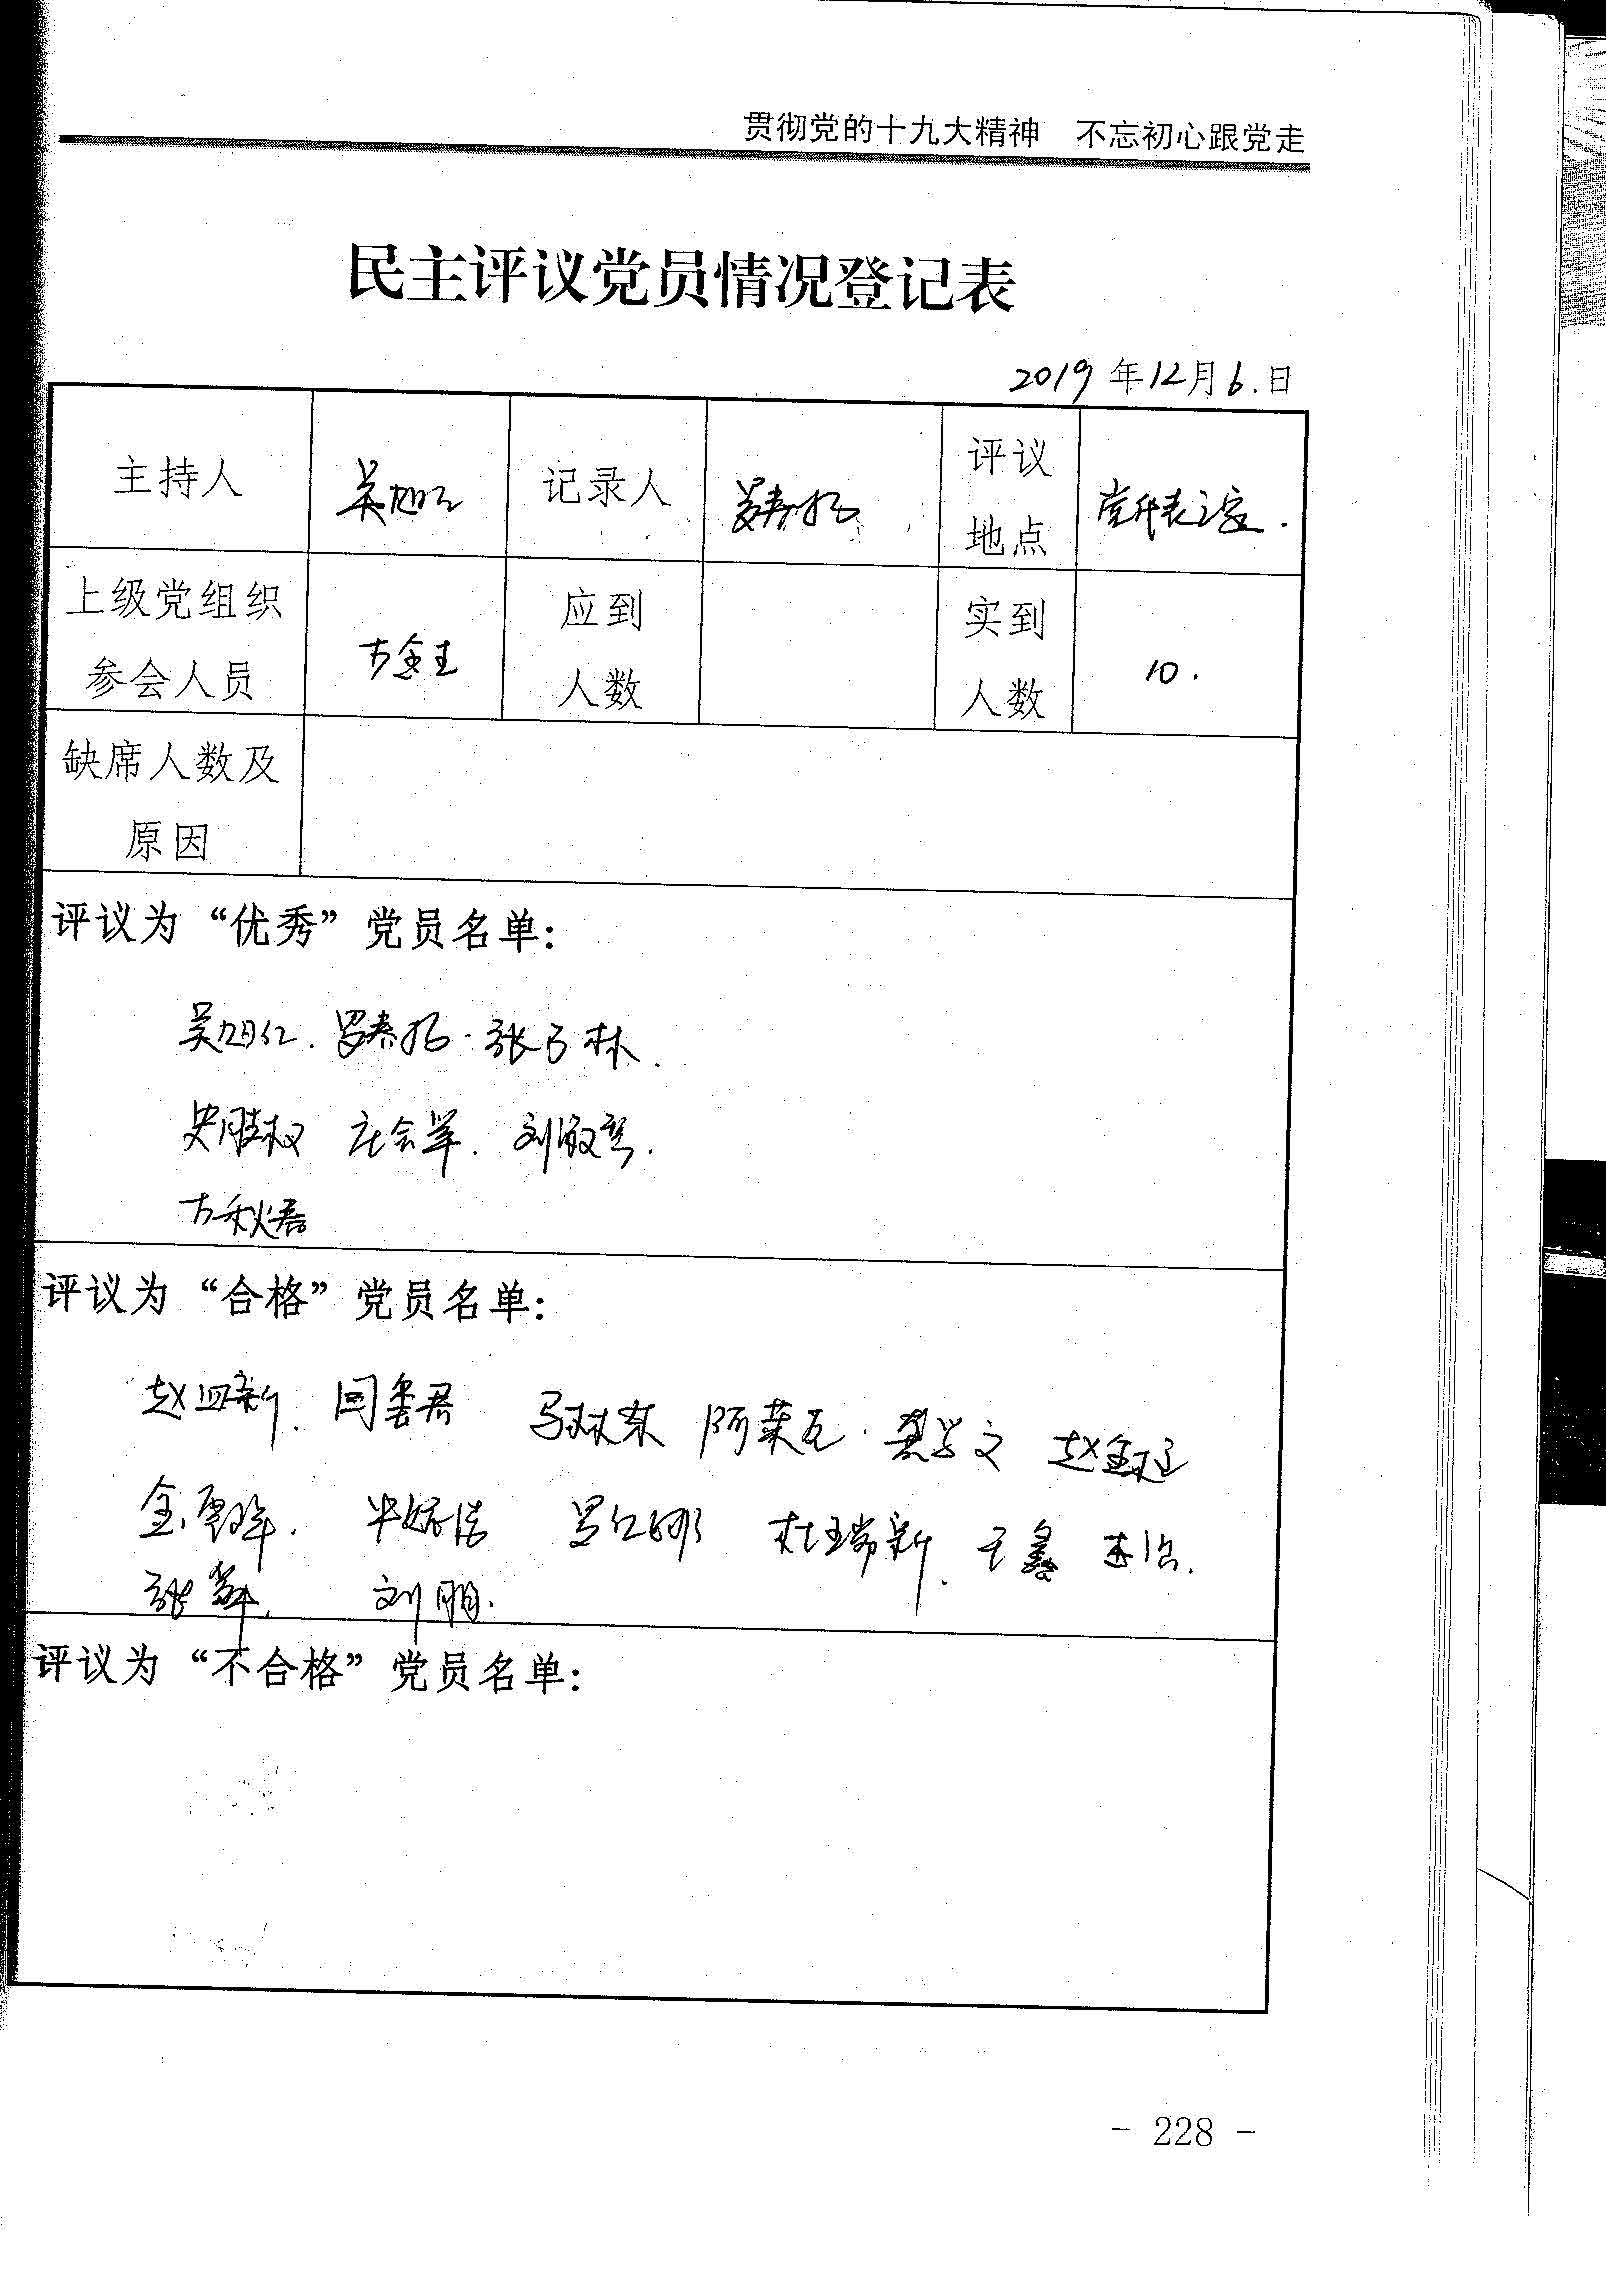 贯彻党的十九大精神 不忘初心跟党走
民主评议党员情况登记表
2019年12月6日
主持人 吴旭红 记录人 评议地点 党代表之家
上级党组织参会人员 应到人数 实到人数 10.
缺席人数及原因
评议为“优秀”党员名单:
吴旭红. 罗春 张 林.
史胜权 庄会军. 刘淑
方秋君
评议为“合格”党员名单:
赵 新. 闫 君 马双东 阿莱瓦. 龚学文 赵金
金 罗红娜 杜瑞新. 王鑫
张 刘鹏.
评议为“不合格”党员名单:
- 228 -